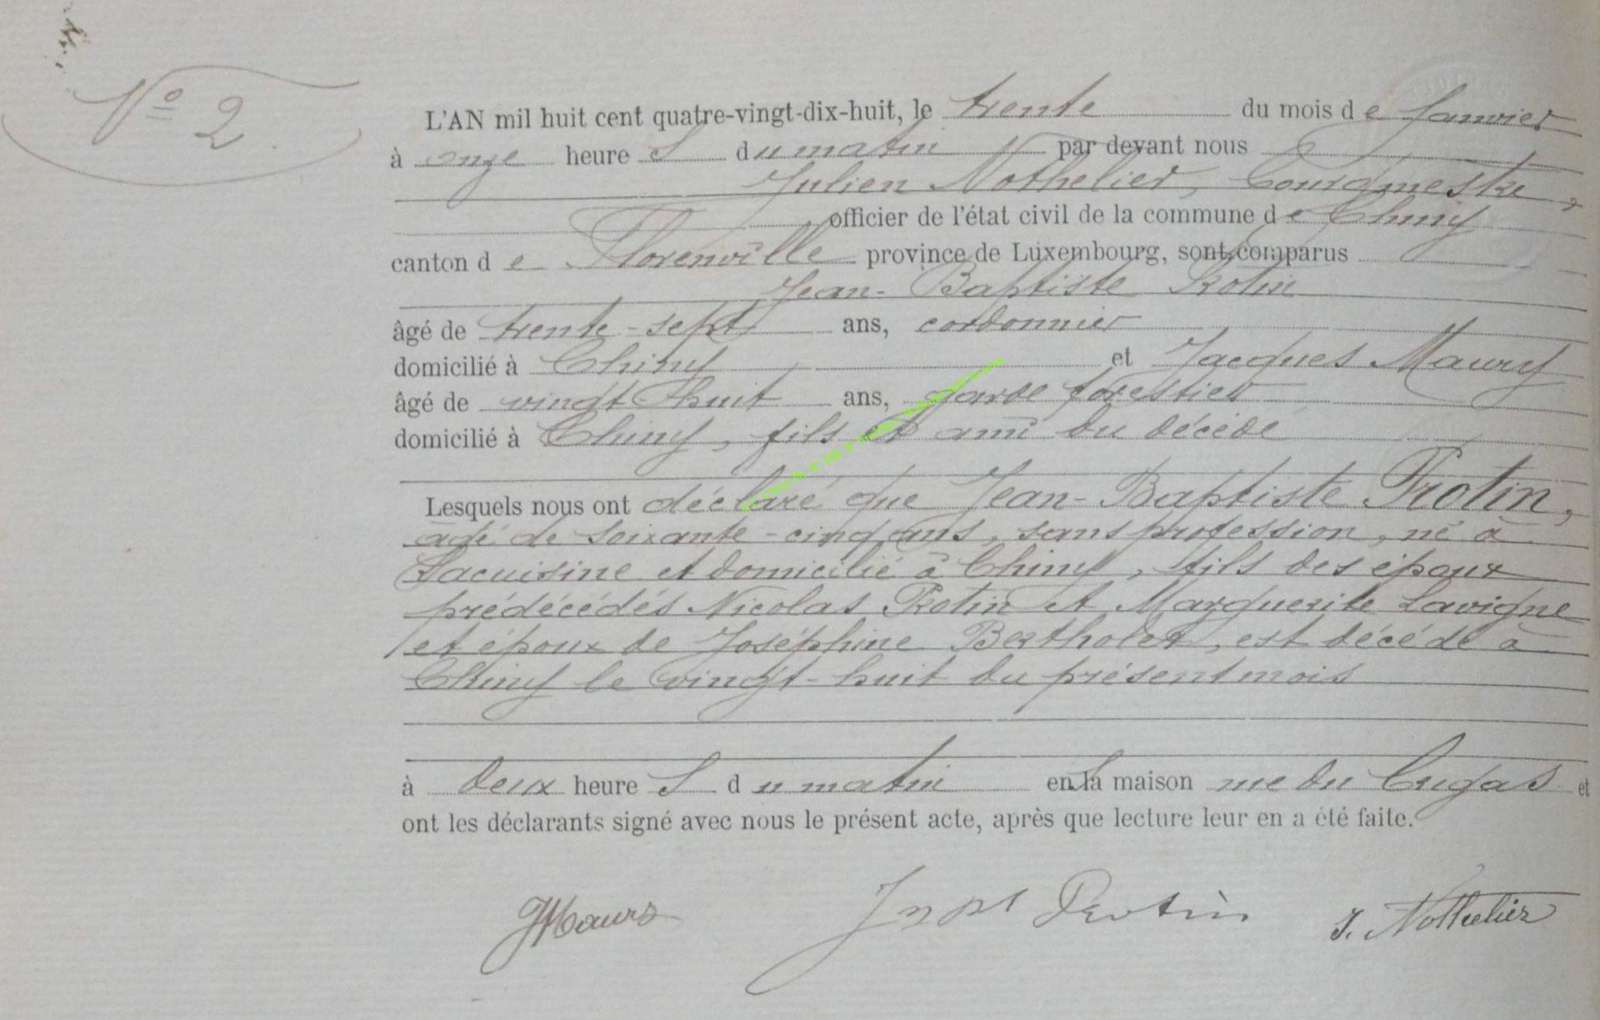 N° 2
L'AN mil huit cent quatre-vingt-dix-huit, le trente du mois de Janvier
à onze heures du matin par devant nous
Julien Nothelier, Bourgmestre,
officier de l'état civil de la commune de Chiny
canton de Florenville province de Luxembourg, sont comparus
Jean-Baptiste Protin
âgé de trente-sept ans, cordonnier
domicilié à Chiny et Jacques Maury
âgé de vingt huit ans, garde forestier
domicilié à Chiny, fils et ami du décédé
Lesquels nous ont déclaré que Jean-Baptiste Protin,
âgé de soixante-cinq ans, sans profession, né à
Lacuisine et domicilié à Chiny, fils des époux
prédécédés Nicolas Protin et Marguerite Lavigne
et époux de Joséphine Bertholet, est décédé à
Chiny le vingt-huit du présent mois
à deux heures du matin en sa maison rue du et
ont les déclarants signé avec nous le présent acte, après que lecture leur en a été faite.
JMaury J Bpt Protin J. Nothelier